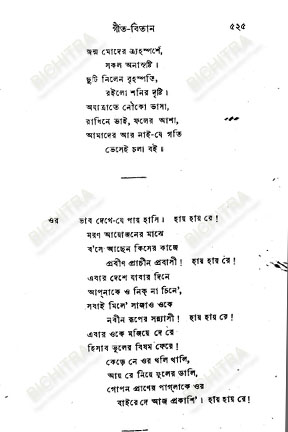 গীত-বিতান ৫২৫
জন্ম মোদের ত্র্যহস্পর্শে,
সকল অনাসৃষ্টি।
ছুটি নিলেন বৃহস্পতি,
রইলো শনির দৃষ্টি।
অযাত্রাতে নৌকো ভাসা,
রাখিনে ভাই, ফলের আশা,
আমাদের আর নাই-যে গতি
ভেসেই চলা বই।
ওর ভাব দেখে-যে পায় হাসি। হায় হায় রে!
মরণ আয়োজনের মাঝে
ব'সে আছেন কিসের কাজে
প্রবীণ প্রাচীন প্রবাসী! হায় হায় রে!
এবার দেশে যাবার দিনে
আপ্‌নাকে ও নিক্‌ না চিনে',
সবাই মিলে' সাজাও ওকে
নবীন রূপের সন্ন্যাসী! হায় হায় রে!
এবার ওকে মজিয়ে দে রে
হিসাব ভুলের বিষম ফেরে!
কেড়ে নে ওর থলি থালি,
আয় রে নিয়ে ফুলের ডালি,
গোপন প্রাণের পাগ্‌লাকে ওর
বাইরে দে আজ প্রকাশি'। হায় হায় রে!
BICHITRA